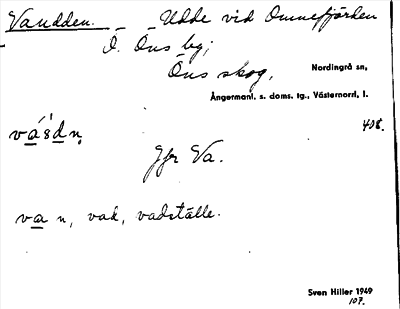 Vaudden. _ _ Udde vid Omnefjärden
I. Öns by;
Öns skog,
Nordingrå sn,
Ångermanl. s. doms. tg., Västernord. l.
408.
Jfr Va.
va n, vak, vadställe.
Sven Hiller 1949
107.